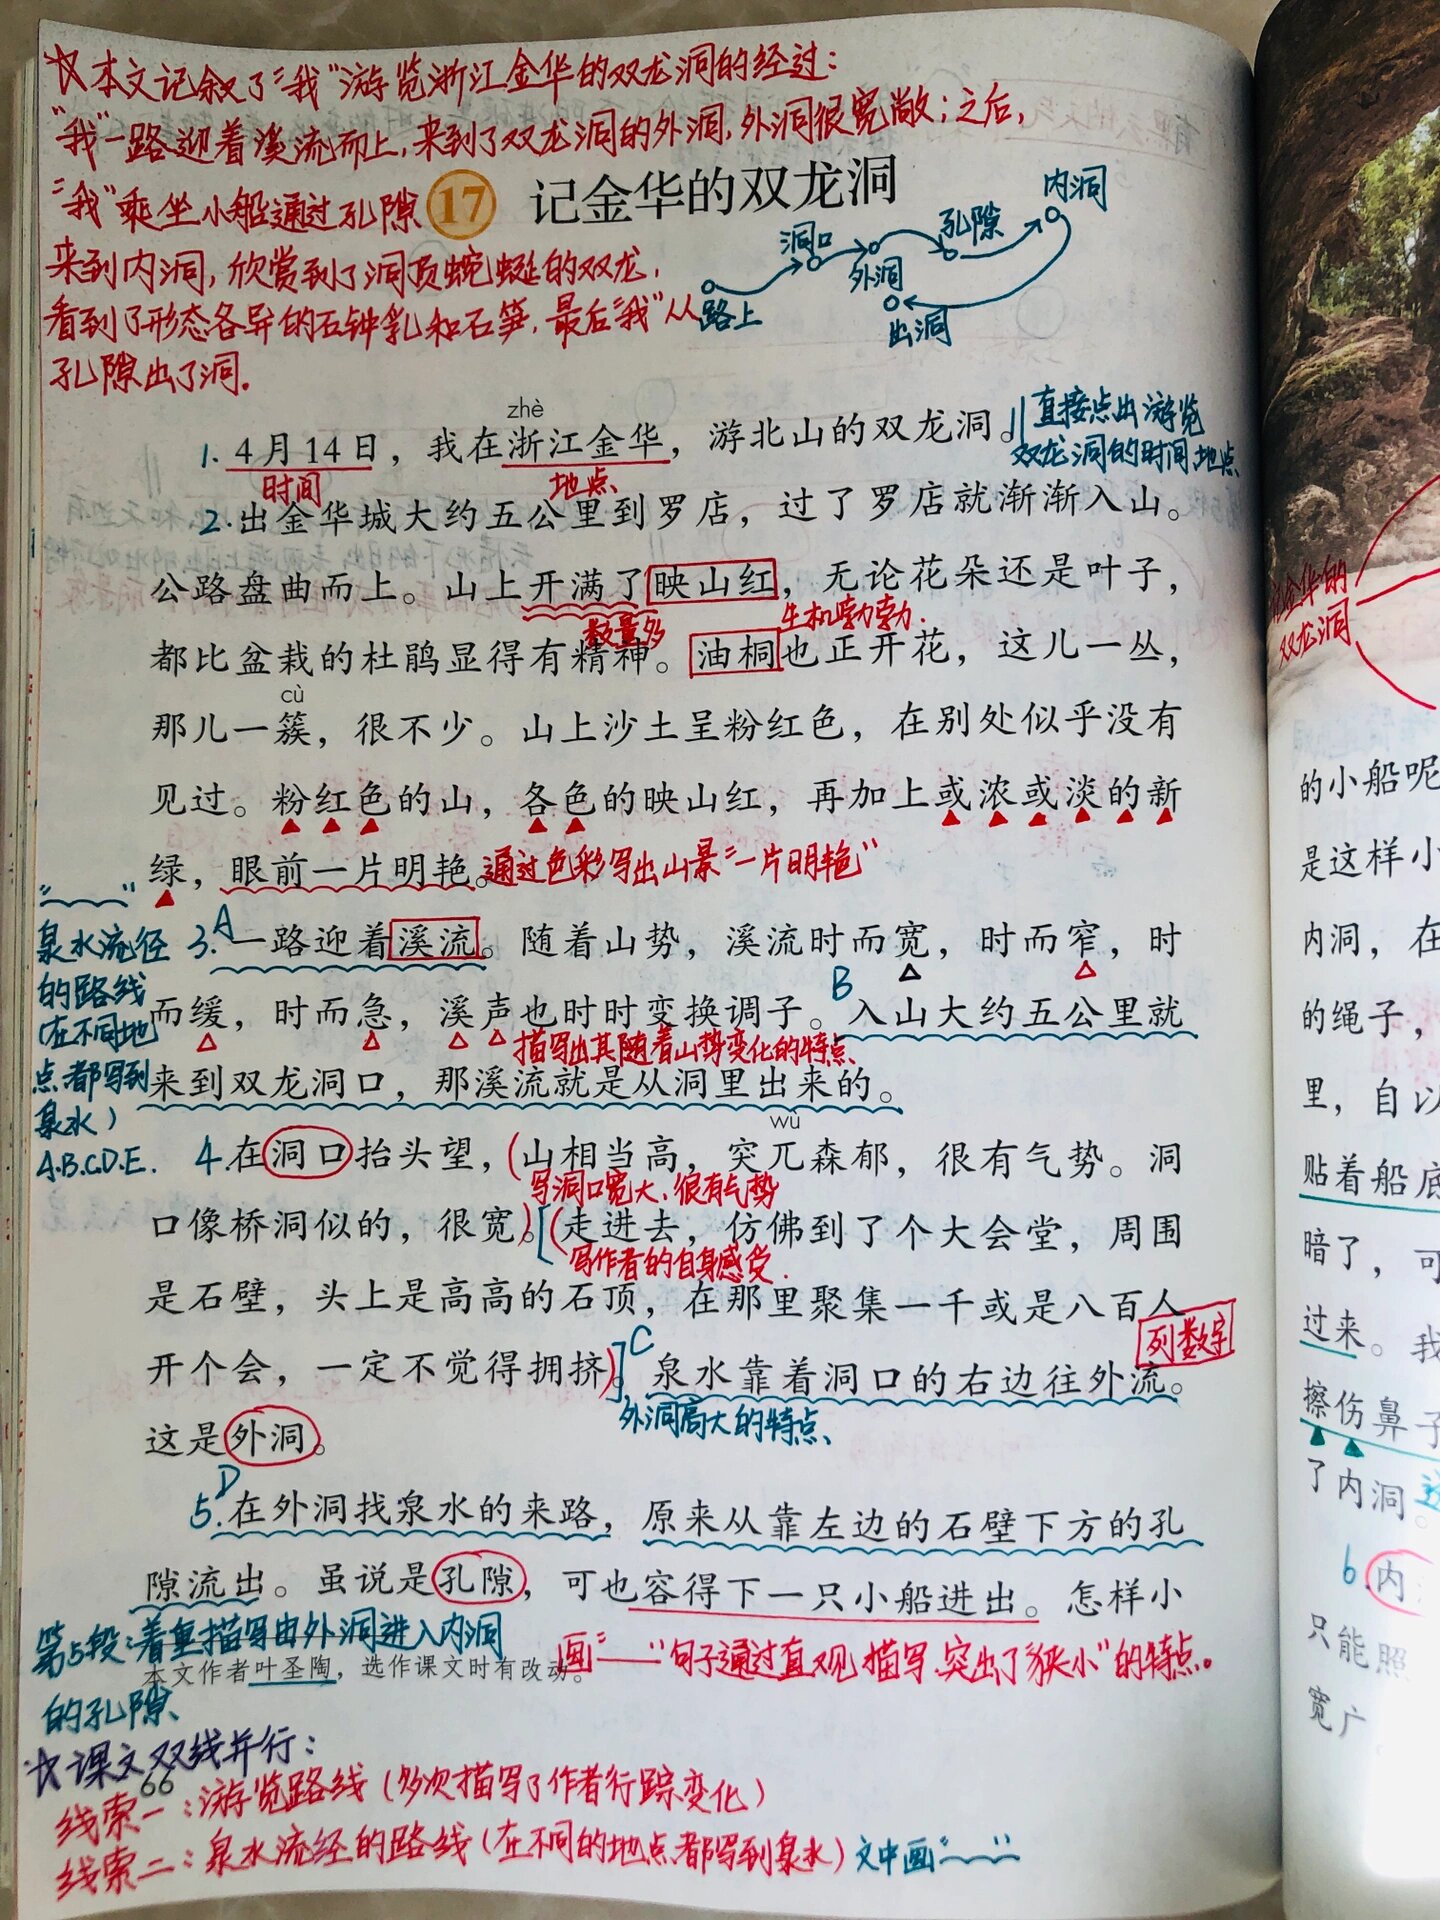 ☆本文记叙了“我”游览浙江金华的双龙洞的经过：
“我”一路迎着溪流而上，来到了双龙洞的外洞，外洞很宽敞；之后，
“我”乘坐小船通过孔隙
17 记金华的双龙洞
来到内洞，欣赏到了洞顶蜿蜒的双龙，
看到了形态各异的石钟乳和石笋，最后“我”从
孔隙出了洞。
路上
洞口
外洞
孔隙
内洞
出洞
zhè
1. 4月14日，我在浙江金华，游北山的双龙洞。
直接点出游览
双龙洞的时间地点
时间
地点
2.出金华城大约五公里到罗店，过了罗店就渐渐入山。
公路盘曲而上。山上开满了映山红，无论花朵还是叶子，
数量多
生机勃勃
都比盆栽的杜鹃显得有精神。油桐也正开花，这儿一丛，
cù
那儿一簇，很不少。山上沙土呈粉红色，在别处似乎没有
见过。粉红色的山，各色的映山红，再加上或浓或淡的新
绿，眼前一片明艳。
通过色彩写出山景“一片明艳”
泉水流径
的路线
(在不同地
点都写到
泉水)
A.B.C.D.E.
A
3.一路迎着溪流。随着山势，溪流时而宽，时而窄，时
B
而缓，时而急，溪声也时时变换调子。入山大约五公里就
描写出其随着山势变化的特点
来到双龙洞口，那溪流就是从洞里出来的。
wù
4.在洞口抬头望，(山相当高，突兀森郁，很有气势。洞
写洞口宽大、很有气势
口像桥洞似的，很宽)。[(走进去，仿佛到了个大会堂，周围
写作者的自身感受.
是石壁，头上是高高的石顶，在那里聚集一千或是八百人
列数字
C
开个会，一定不觉得拥挤)。]泉水靠着洞口的右边往外流。
外洞高大的特点
这是外洞。
D
5.在外洞找泉水的来路，原来从靠左边的石壁下方的孔
隙流出。虽说是孔隙，可也容得下一只小船进出。怎样小
第5段：着重描写由外洞进入内洞
的孔隙
画“——”句子通过直观描写、突出了“狭小”的特点。
本文作者叶圣陶，选作课文时有改动。
☆课文双线并行：
66
线索一：游览路线(多次描写了作者行踪变化)
线索二：泉水流经的路线(在不同的地点都写到泉水)文中画“﹏﹏”
金华的
双龙洞
的小船呢
是这样小
内洞，在
的绳子，
里，自以
贴着船底
暗了，可
过来。我
擦伤鼻子
了内洞。
6.内
只能照
宽广